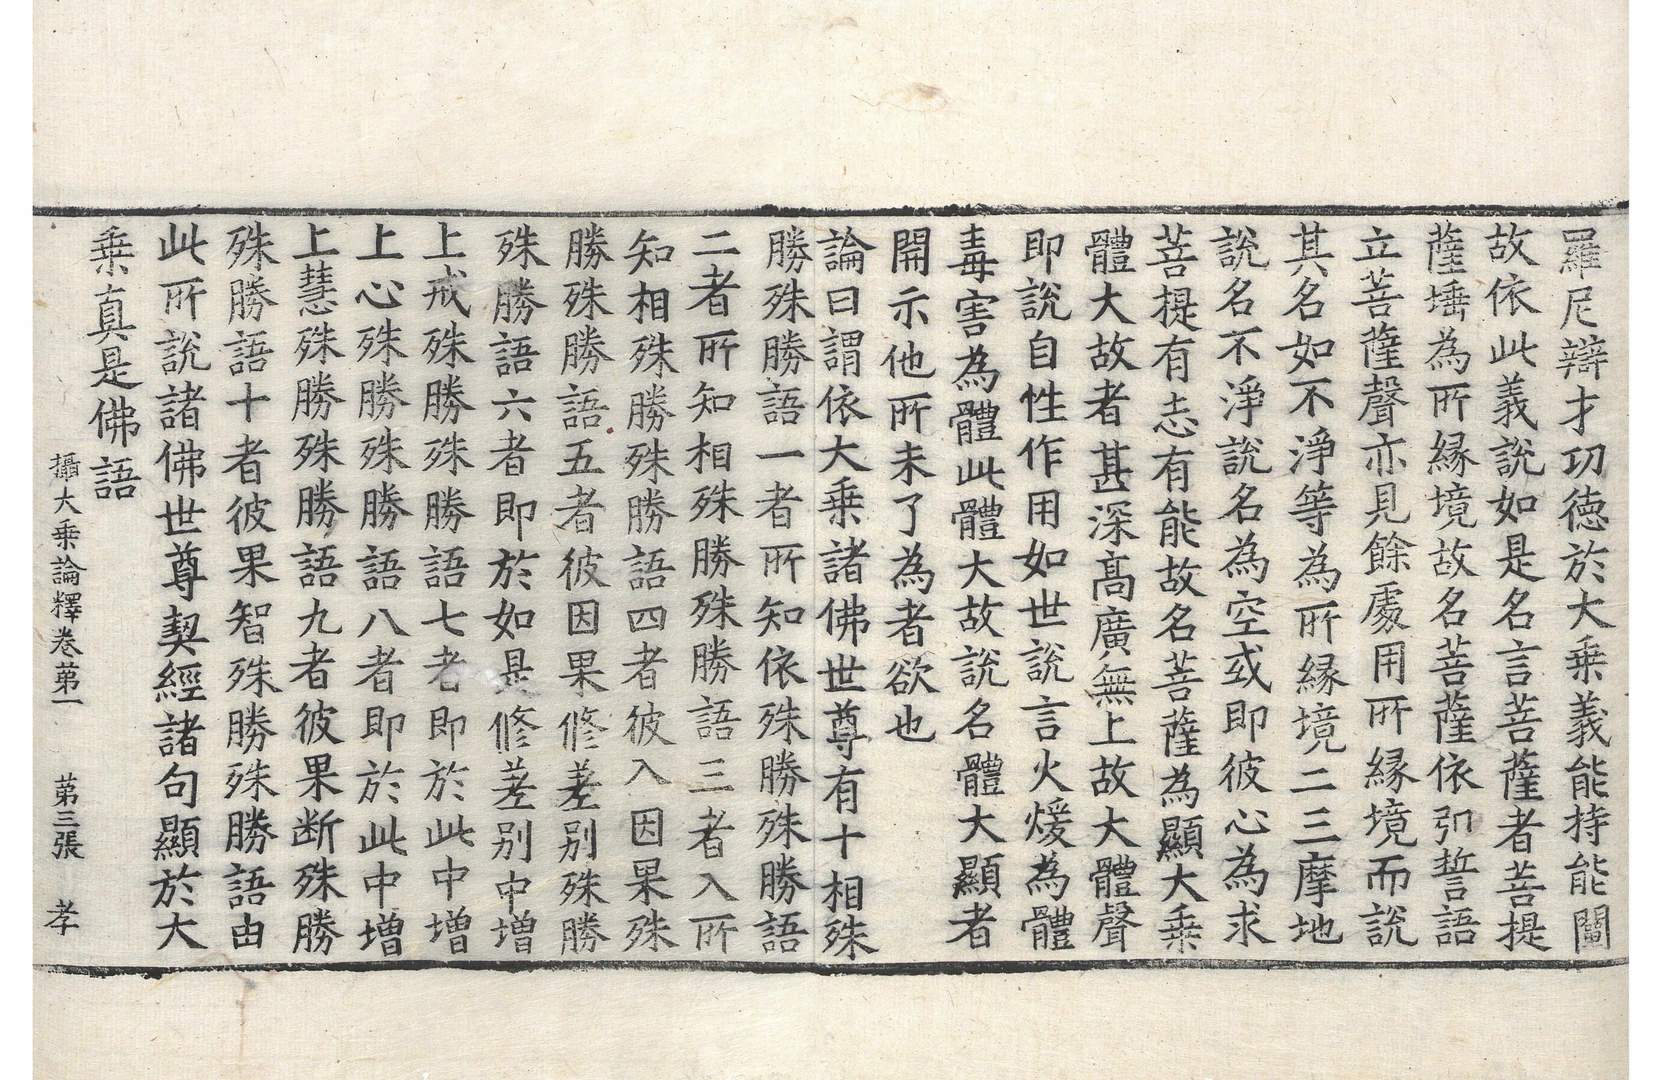 羅尼辯才功德於大乗義能持能闡
故依此義說如是名言菩薩者菩提
薩埵為所縁境故名菩薩依弘誓語
立菩薩聲亦見餘處用所縁境而說
其名如不淨等為所縁境二三摩地
說名不淨說名為空或即彼心為求
菩提有志有能故名菩薩為顯大乗
體大故者甚深高廣無上故大體聲
即說自性作用如世說言火煖為體
毒害為體此體大故說名體大顯者
開示他所未了為者欲也
論曰謂依大乗諸佛世尊有十相殊
勝殊勝語一者所知依殊勝殊勝語
二者所知相殊勝殊勝語三者入所
知相殊勝殊勝語四者彼入因果殊
勝殊勝語五者彼因果修差別殊勝
殊勝語六者即於如是修差別中增
上戒殊勝殊勝語七者即於此中增
上心殊勝殊勝語八者即於此中增
上慧殊勝殊勝語九者彼果断殊勝
殊勝語十者彼果智殊勝殊勝語由
此所說諸佛世尊契經諸句顯於大
乗真是佛語
攝大乗論釋卷苐一 苐三張 孝